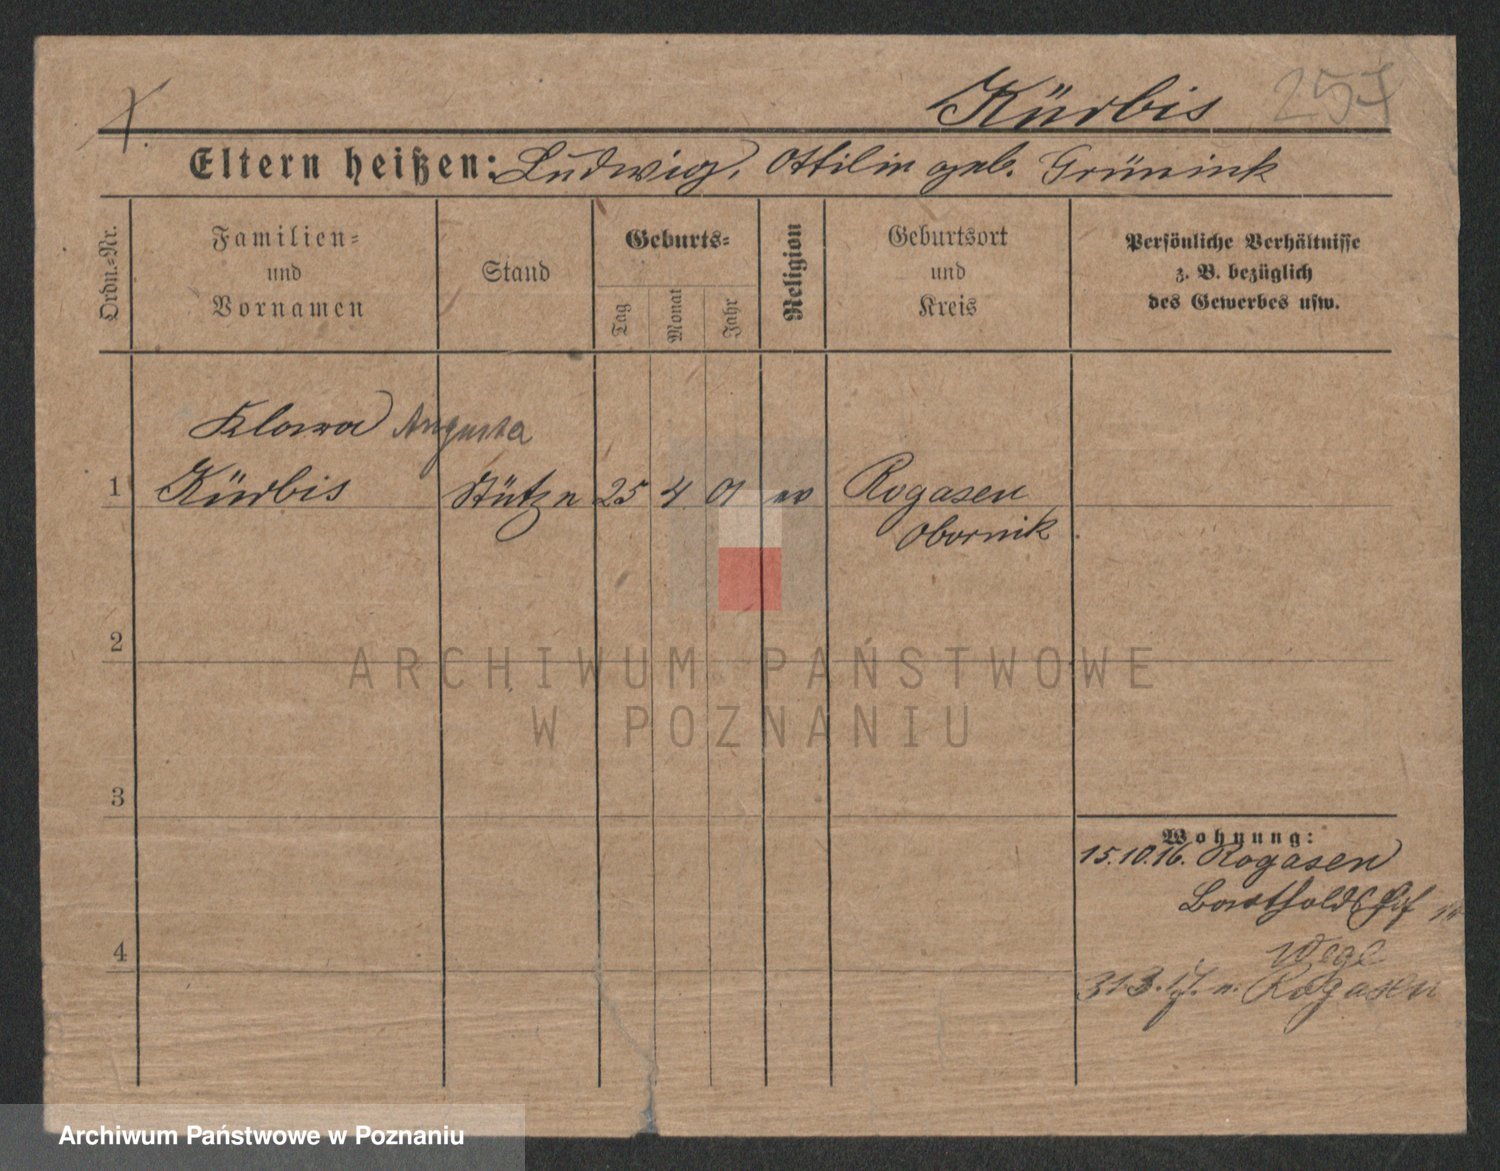 Kürbis 257
Eltern heißen: Ludwig, Ottilie geb. Grünink
Ordn.-Nr.
Familien-
und
Vornamen
Stand
Geburts-
Tag
Monat
Jahr
Religion
Geburtsort
und
Kreis
Persönliche Verhältnisse
z. B. bezüglich
des Gewerbes usw.
Klara Augusta
1 Kürbis Stütze 25 4 01 ev Rogasen
Obornik
2
3
4
Wohnung:
15.10.16. Rogasen
Wege
31.3.17. n. Rogasen
ARCHIWUM PAŃSTWOWE
W POZNANIU
Archiwum Państwowe w Poznaniu